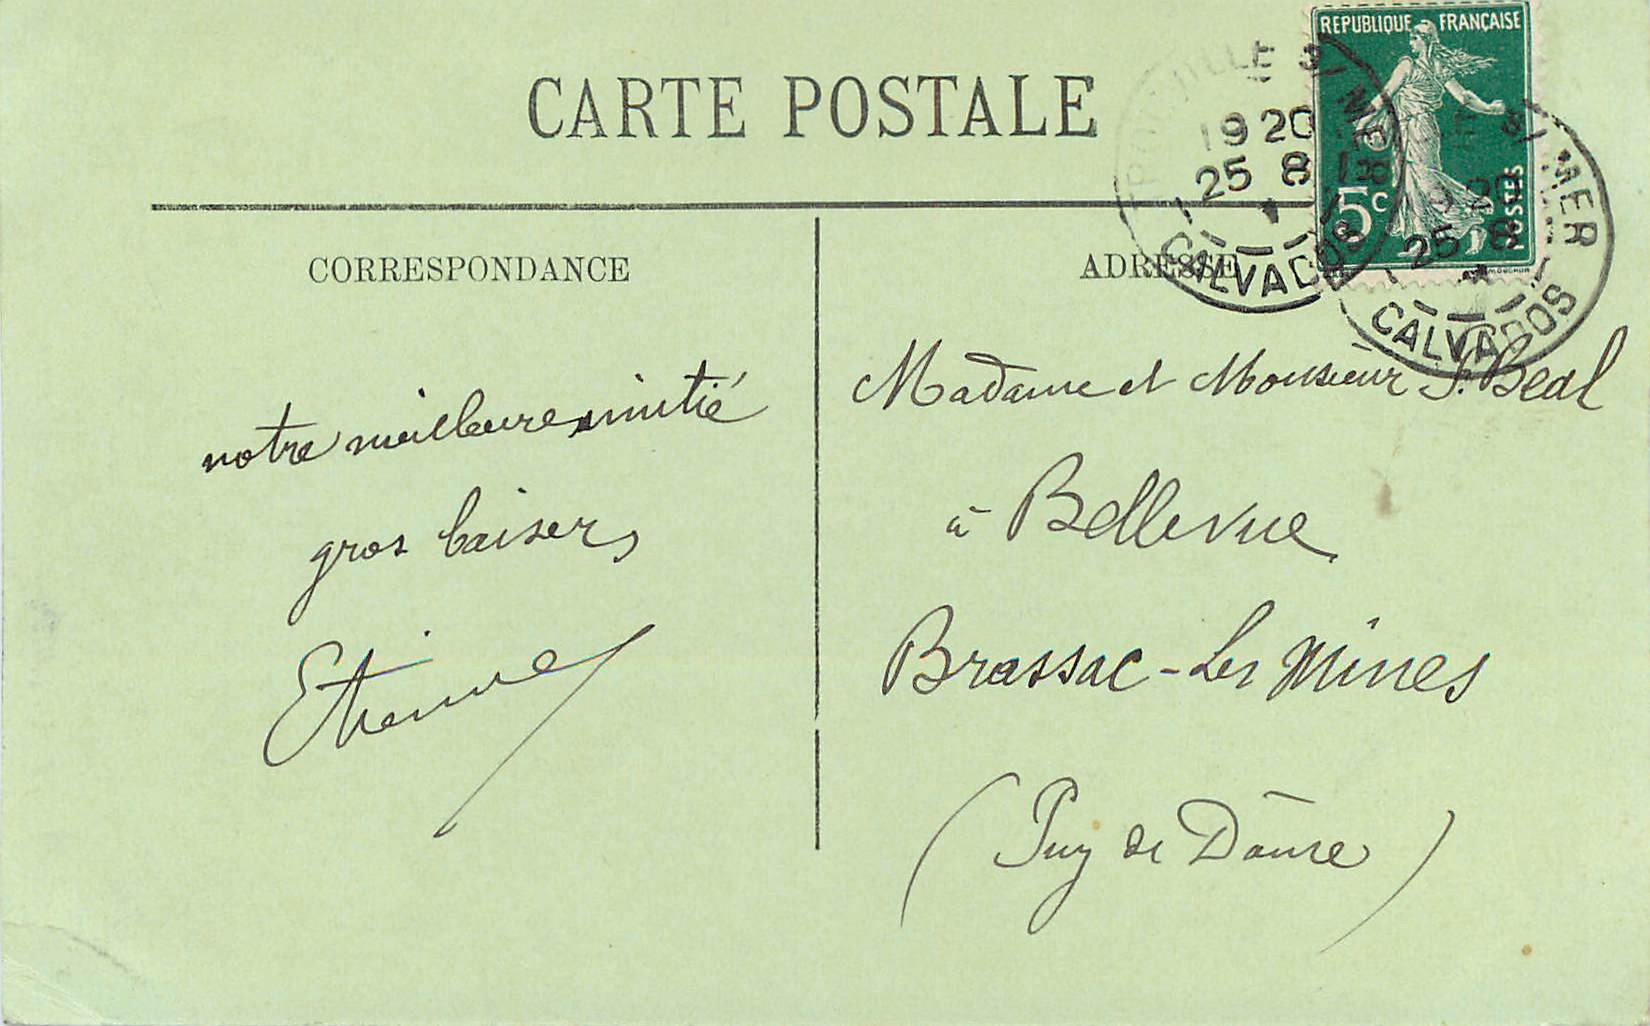 CARTE POSTALE
REPUBLIQUE FRANÇAISE
5c
POSTES
MOUCHON
TROUVILLE S/ MER
19 20
25 8
CALVADOS
S/ MER
20
25 8
CALVADOS
CORRESPONDANCE
notre meilleure amitié
gros baisers
Etienne
ADRESSE
Madame et Monsieur J. Beal
à Bellevue
Brassac-Les Mines
(Puy de Dôme)